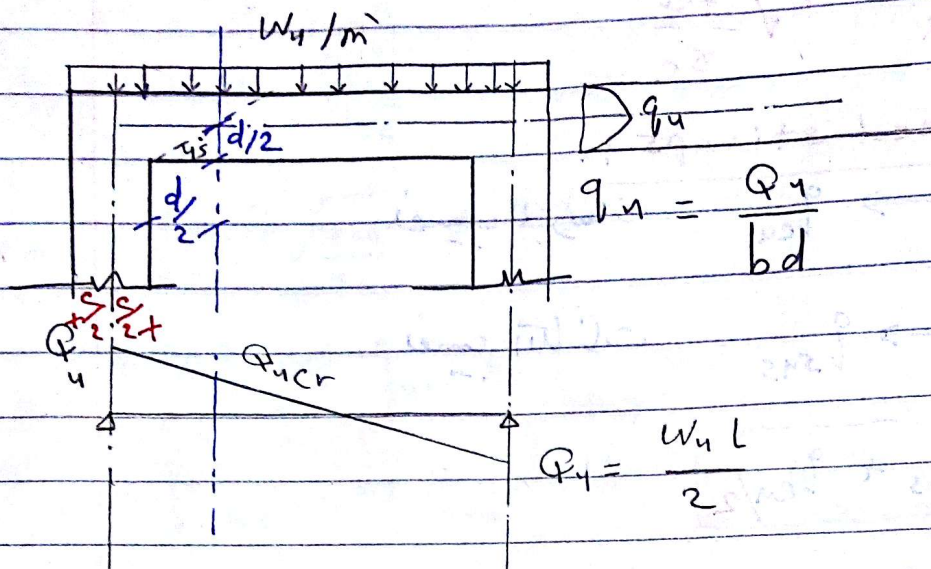 Wu /m'
d/2
45°
qu
d/2
qu = Qu / bd
c/2 c/2
Qu
Qucr
Qu = Wu L / 2